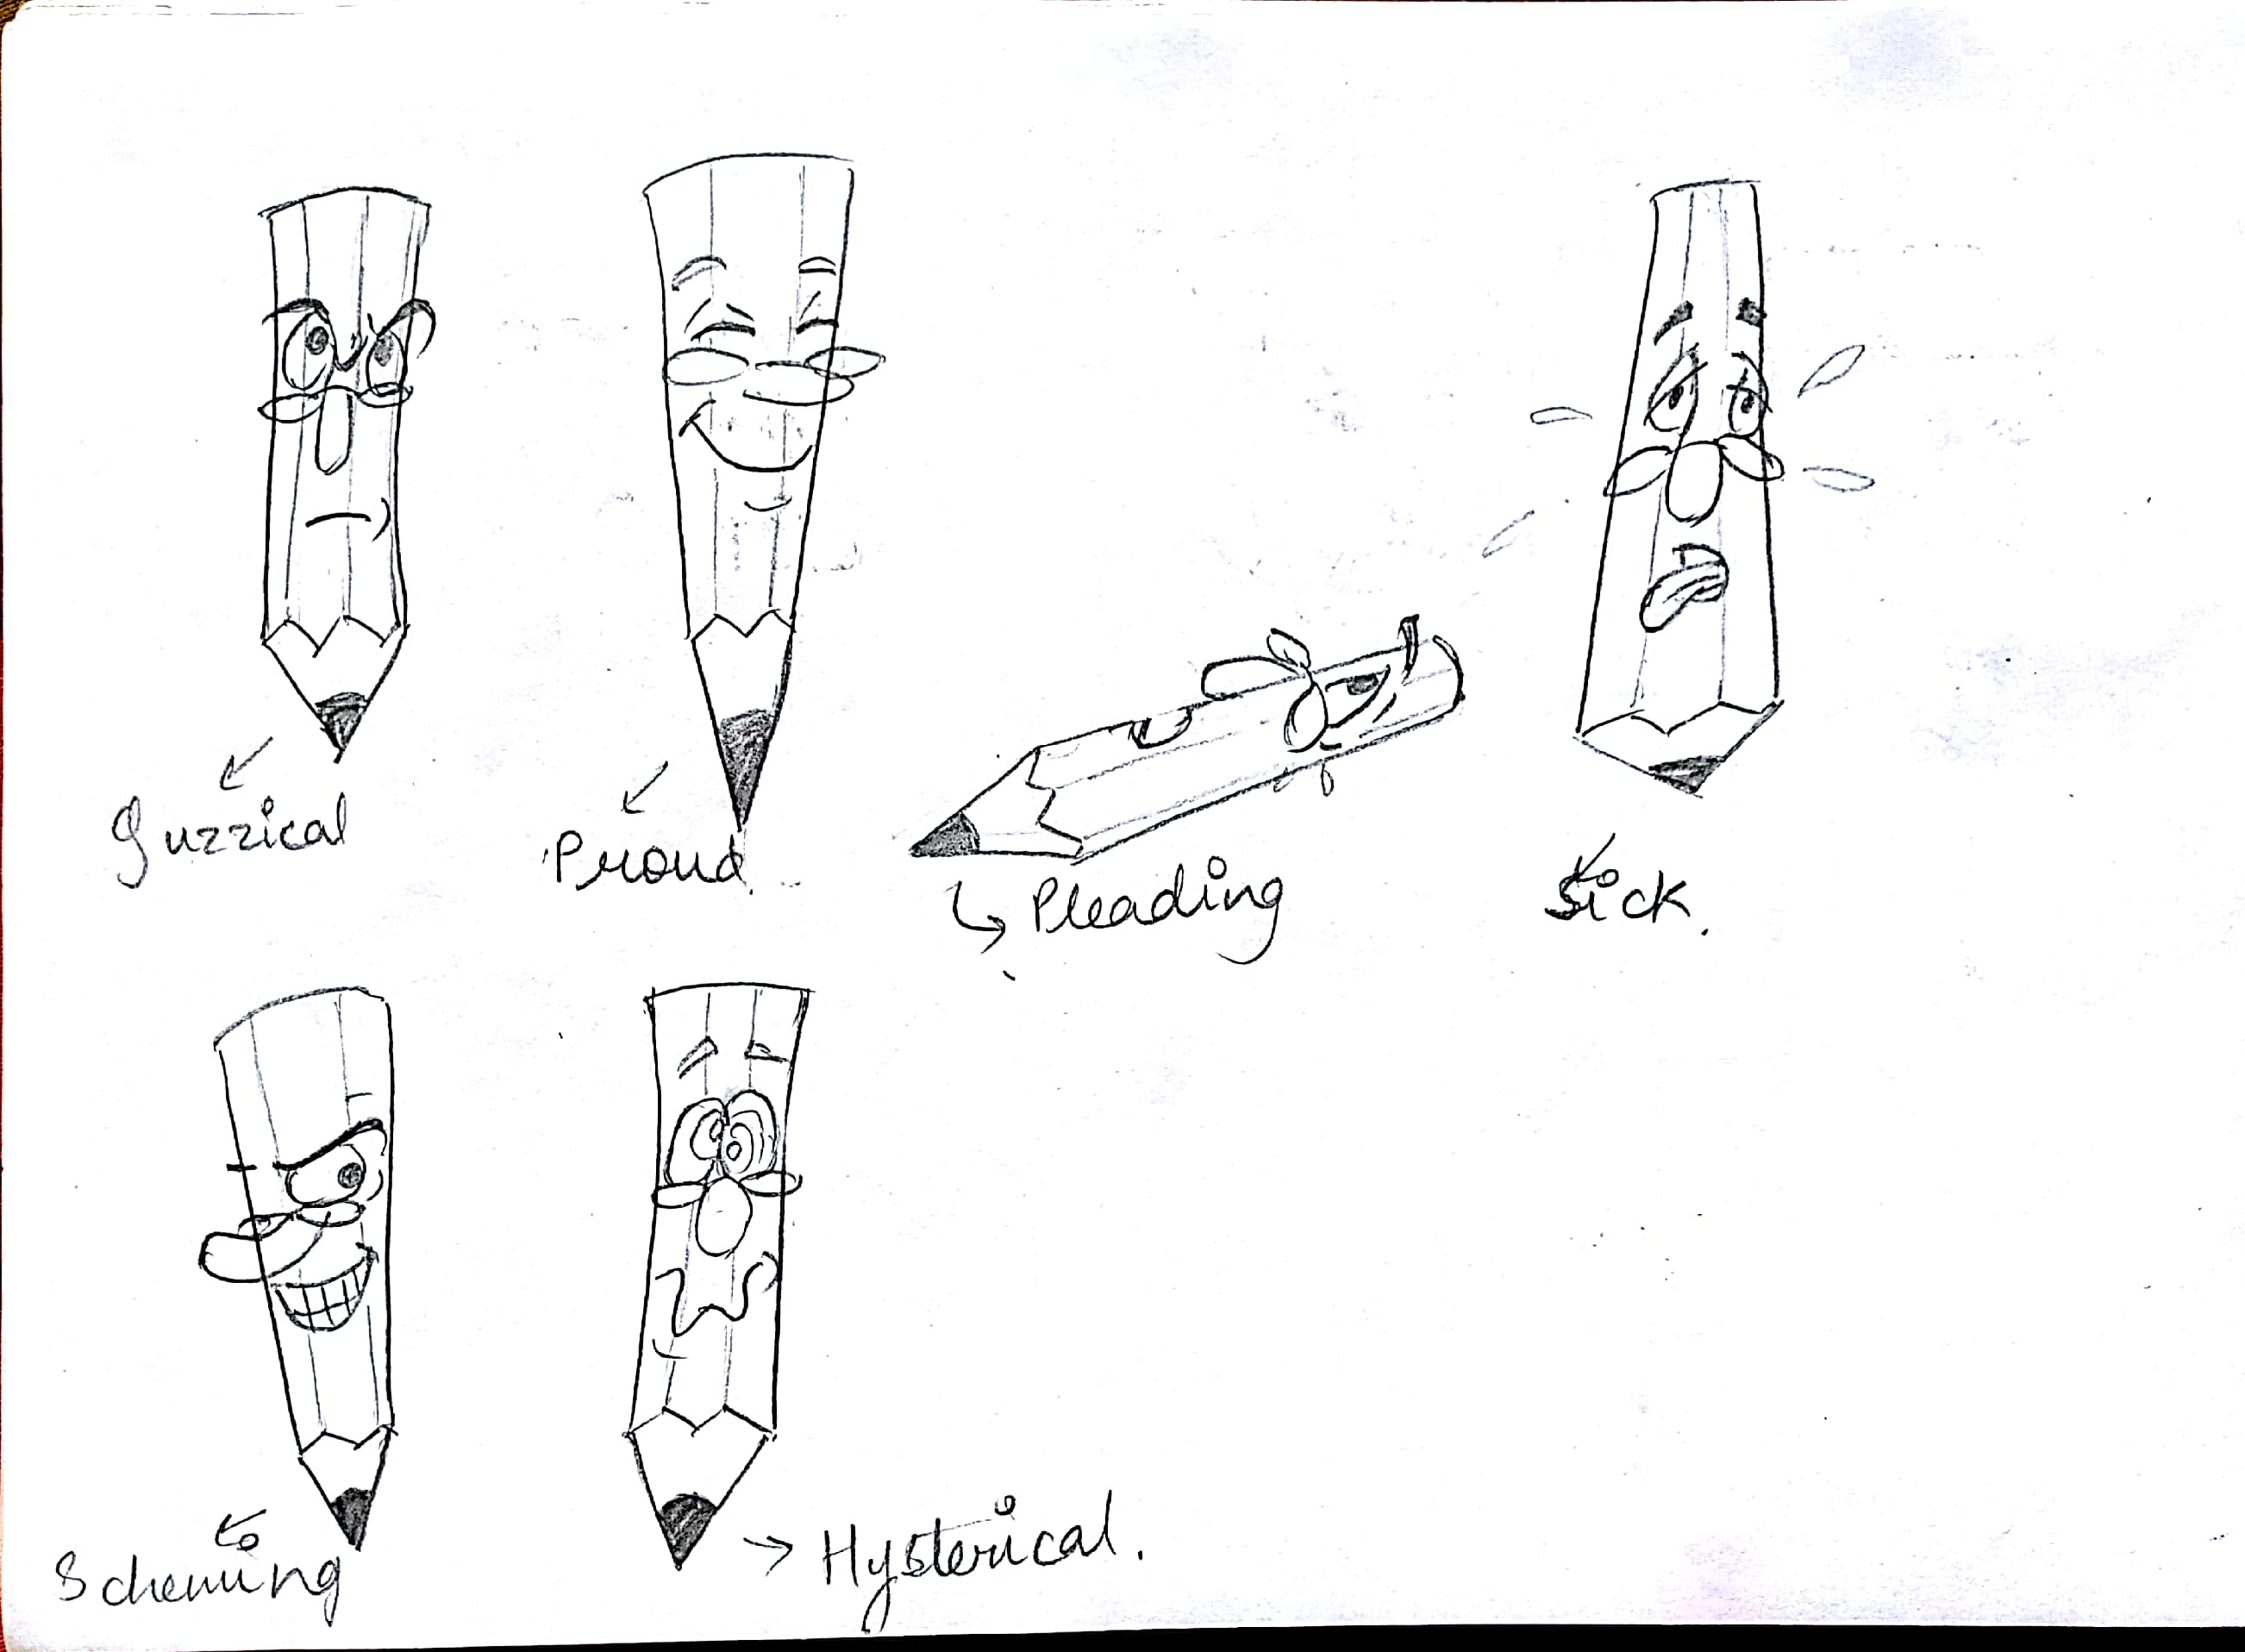 guzzical
Proud.
Pleading
Sick.
Scheming
Hysterical.